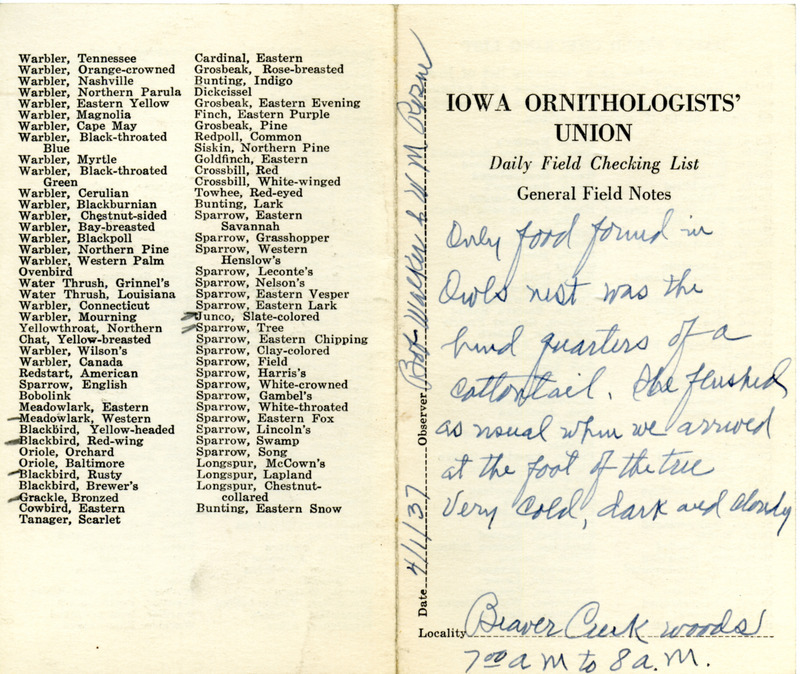 Warbler, Tennessee
Warbler, Orange-crowned
Warbler, Nashville
Warbler, Northern Parula
Warbler, Eastern Yellow
Warbler, Magnolia
Warbler, Cape May
Warbler, Black-throated
Blue
Warbler, Myrtle
Warbler, Black-throated
Green
Warbler, Cerulian
Warbler, Blackburnian
Warbler, Chestnut-sided
Warbler, Bay-breasted
Warbler, Blackpoll
Warbler, Northern Pine
Warbler, Western Palm
Ovenbird
Water Thrush, Grinnel's
Water Thrush, Louisiana
Warbler, Connecticut
Warbler, Mourning
Yellowthroat, Northern
Chat, Yellow-breasted
Warbler, Wilson's
Warbler, Canada
Redstart, American
Sparrow, English
Bobolink
Meadowlark, Eastern
Meadowlark, Western
Blackbird, Yellow-headed
Blackbird, Red-wing
Oriole, Orchard
Oriole, Baltimore
Blackbird, Rusty
Blackbird, Brewer's
Grackle, Bronzed
Cowbird, Eastern
Tanager, Scarlet
Cardinal, Eastern
Grosbeak, Rose-breasted
Bunting, Indigo
Dickcissel
Grosbeak, Eastern Evening
Finch, Eastern Purple
Grosbeak, Pine
Redpoll, Common
Siskin, Northern Pine
Goldfinch, Eastern
Crossbill, Red
Crossbill, White-winged
Towhee, Red-eyed
Bunting, Lark
Sparrow, Eastern
Savannah
Sparrow, Grasshopper
Sparrow, Western
Henslow's
Sparrow, Leconte's
Sparrow, Nelson's
Sparrow, Eastern Vesper
Sparrow, Eastern Lark
Junco, Slate-colored
Sparrow, Tree
Sparrow, Eastern Chipping
Sparrow, Clay-colored
Sparrow, Field
Sparrow, Harris's
Sparrow, White-crowned
Sparrow, Gambel's
Sparrow, White-throated
Sparrow, Eastern Fox
Sparrow, Lincoln's
Sparrow, Swamp
Sparrow, Song
Longspur, McCown's
Longspur, Lapland
Longspur, Chestnut-
collared
Bunting, Eastern Snow
Date 4/1/37 Observer Bob Walker & W. M. Rosene
IOWA ORNITHOLOGISTS'
UNION
Daily Field Checking List
General Field Notes
Only food found in
Owls nest was the
hind quarters of a
cottontail. She flushed
as usual when we arrived
at the foot of the tree
Very cold, dark and cloudy
Locality Beaver Creek woods
7:00 a M to 8 a.M.